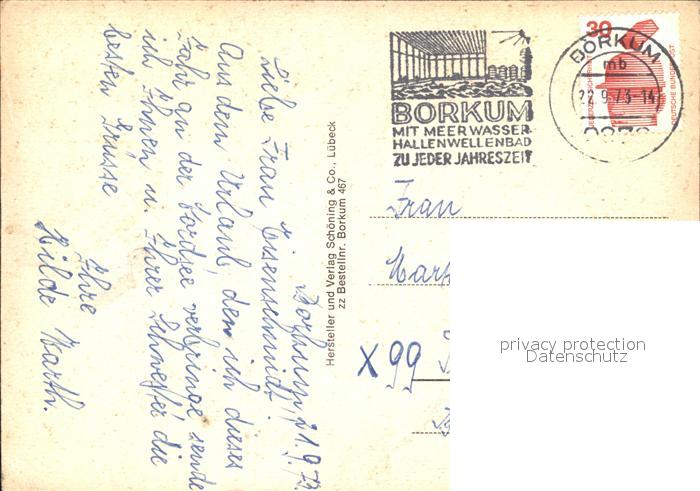 Borkum, 21.9.73.
Liebe Frau Eisenschmidt!
Aus dem Urlaub, den ich dieses
Jahr an der Nordsee verbringe sende
ich Ihnen u. Ihrer Schwester die
besten Grüsse
Ihre
Hilde Harth.
Hersteller und Verlag Schöning & Co., Lübeck
zz Bestellnr. Borkum 467
BORKUM
MIT MEERWASSER-
HALLENWELLENBAD
ZU JEDER JAHRESZEIT
BORKUM
mb
22.9.73-14
30
DEUTSCHE BUNDESPOST
Frau
X 99
privacy protection
Datenschutz